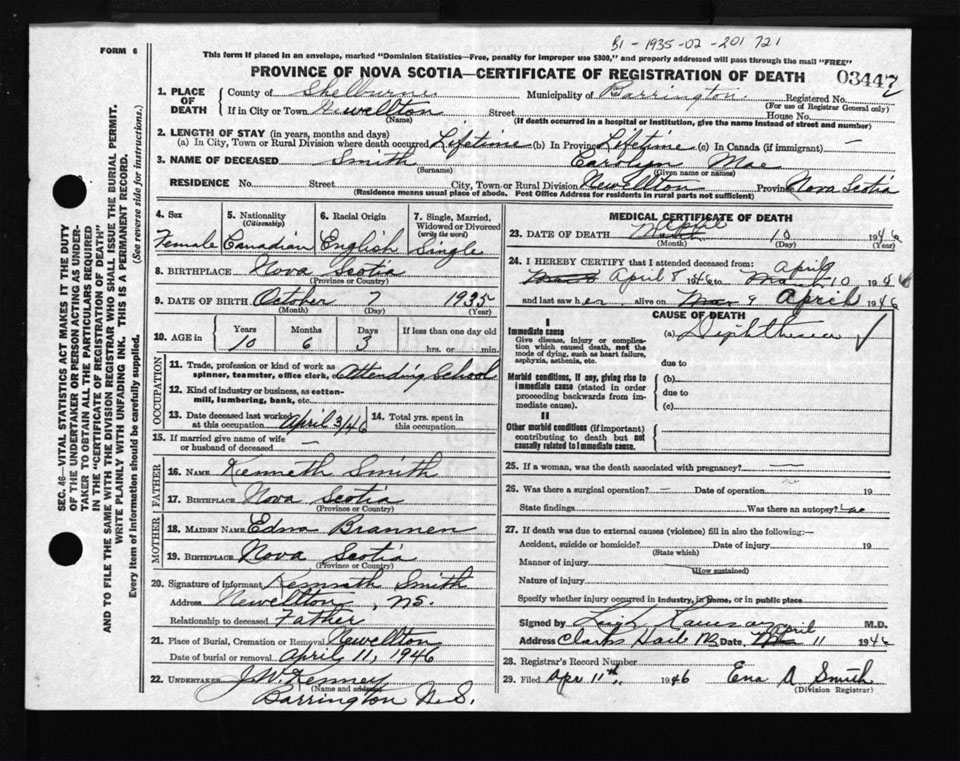 B1 - 1935 - 02 - 201 721
FORM 6
This form if placed in an envelope, marked "Dominion Statistics—Free, penalty for improper use $300," and properly addressed will pass through the mail "FREE"
PROVINCE OF NOVA SCOTIA—CERTIFICATE OF REGISTRATION OF DEATH
03447
1. PLACE OF DEATH
County of Shelburne Municipality of Barrington. Registered No.
(For use of Registrar General only)
If in City or Town Newellton Street House No.
(Name) (If death occurred in a hospital or institution, give the name instead of street and number)
2. LENGTH OF STAY (in years, months and days)
(a) In City, Town or Rural Division where death occurred Lifetime (b) In Province Lifetime (c) In Canada (if immigrant) —
3. NAME OF DECEASED Smith Carolyn Mae
(Surname) (Given name or names)
RESIDENCE No. Street City, Town or Rural Division Newellton Province Nova Scotia
(Residence means usual place of abode. Post Office Address for residents in rural parts not sufficient)
4. Sex
Female
5. Nationality
(Citizenship)
Canadian
6. Racial Origin
English
7. Single, Married, Widowed or Divorced
(write the word)
Single
8. BIRTHPLACE Nova Scotia
(Province or Country)
9. DATE OF BIRTH October 7 1935
(Month) (Day) (Year)
10. AGE in
Years Months Days If less than one day
10 6 3 hrs. or min.
OCCUPATION
11. Trade, profession or kind of work as spinner, teamster, office clerk, etc. Attending School
12. Kind of industry or business, as cotton-mill, lumbering, bank, etc.
13. Date deceased last worked at this occupation April 3/46
14. Total yrs. spent in this occupation
15. If married give name of wife or husband of deceased —
FATHER
16. NAME Kenneth Smith
17. BIRTHPLACE Nova Scotia
(Province or Country)
MOTHER
18. MAIDEN NAME Edna Brannen
19. BIRTHPLACE Nova Scotia
(Province or Country)
20. Signature of informant Kenneth Smith
Address Newellton, NS.
Relationship to deceased Father
21. Place of Burial, Cremation or Removal Newellton
Date of burial or removal April 11, 1946
22. UNDERTAKER J.W. Kenney
(Name and address)
Barrington N.S.
MEDICAL CERTIFICATE OF DEATH
23. DATE OF DEATH April 10 1946
(Month) (Day) (Year)
24. I HEREBY CERTIFY that I attended deceased from:
April 8 1946 to April 10 1946
and last saw her alive on 9 April 1946
CAUSE OF DEATH
I
Immediate cause
Give disease, injury or complication which caused death, not the mode of dying, such as heart failure, asphyxia, asthenia, etc.
(a) Diphtheria ✓
due to
Morbid conditions, if any, giving rise to immediate cause (stated in order proceeding backwards from immediate cause).
(b)
due to
(c)
II
Other morbid conditions (if important) contributing to death but not causally related to immediate cause.
25. If a woman, was the death associated with pregnancy? —
26. Was there a surgical operation? — Date of operation 19
State findings Was there an autopsy?
27. If death was due to external causes (violence) fill in also the following:—
Accident, suicide or homicide? Date of injury 19
(State which)
Manner of injury
(How sustained)
Nature of injury
Specify whether injury occurred in industry, in home, or in public place
Signed by M.D.
Address Clarks Date April 11 1946
28. Registrar's Record Number
29. Filed Apr 11th, 1946 Ena A Smith
(Division Registrar)
SEC. 46—VITAL STATISTICS ACT MAKES IT THE DUTY
OF THE UNDERTAKER OR PERSON ACTING AS UNDER-
TAKER TO OBTAIN ALL THE PARTICULARS REQUIRED
IN THE "CERTIFICATE OF REGISTRATION OF DEATH"
AND TO FILE THE SAME WITH THE DIVISION REGISTRAR WHO SHALL ISSUE THE BURIAL PERMIT.
WRITE PLAINLY WITH UNFADING INK. THIS IS A PERMANENT RECORD.
Every item of information should be carefully supplied. (See reverse side for instructions.)